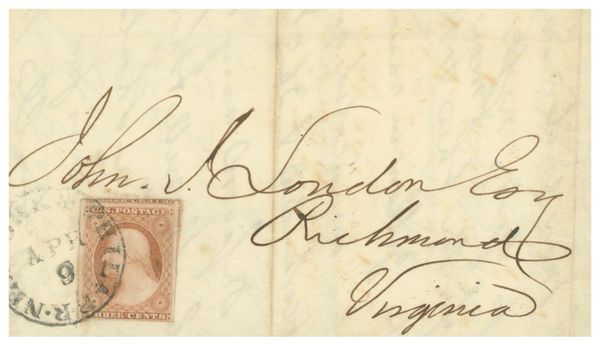 John. S. London Esq
Richmond
Virginia
U.S. POSTAGE
THREE CENTS
APR
9